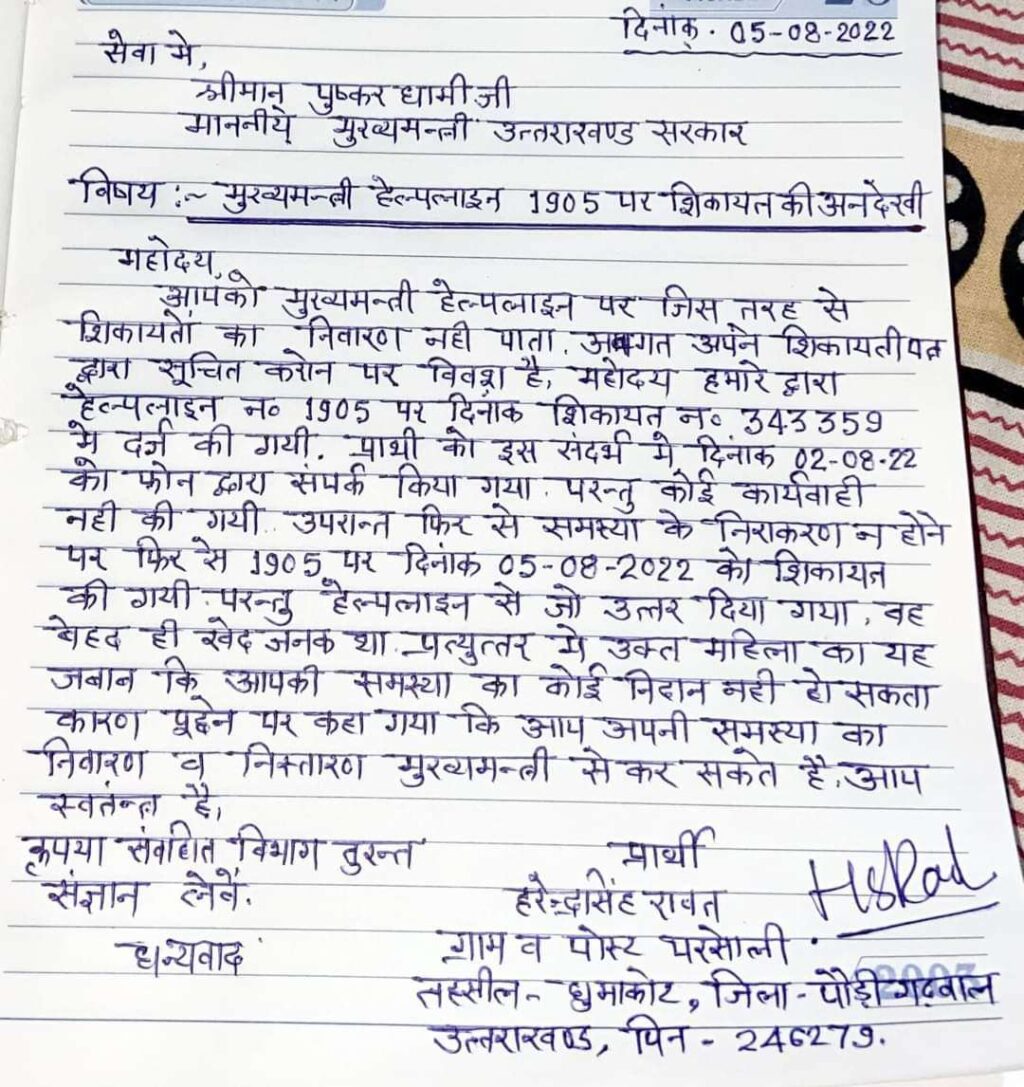 दिनांक. 05-08-2022
सेवा मे,
श्रीमान् पुष्कर धामी जी
माननीये मुख्यमन्त्री उत्तराखण्ड सरकार
विषय :~ मुख्यमन्त्री हेल्पलाइन 1905 पर शिकायत की अनदेखी
महोदय,
आपको मुख्यमन्ती हेल्पलाइन पर जिस तरह से
शिकायतों का निवारण नही पाता. अवगत अपने शिकायतीपत्र
द्वारा सूचित करोन पर विवश है, महोदय हमारे द्वारा
हेल्पलाइन न० 1905 पर दिनांक शिकायत न० 343359
मे दर्ज की गयी. प्राथी को इस संदर्भ मे दिनांक 02-08-22
को फोन द्वारा संपर्क किया गया. परन्तु कोई कार्यवाही
नही की गयी. उपरान्त फिर से समस्या के निराकरण न होने
पर फिर सेे 1905 पर दिनांक 05-08-2022 को शिकायत
की गयी. परन्तु हेल्पलाइन से जो उत्तर दिया गया, वह
बेहद ही खेद जनक था. प्रत्युत्तर मे उक्त महिला का यह
जबान कि आपकी समस्या का कोई निदान नही हो सकता
कारण पूछेन पर कहा गया कि आप अपनी समस्या का
निवारण व निस्तारण मुख्यमन्त्री से कर सकेत है, आप
स्वतंन्त्र है,
कृपया संबधित विभाग तुरन्त
संज्ञान लेवें.
धन्यवाद
प्रार्थी
हरेन्द्रसिंह रावत
ग्राम व पोस्ट परसोली
तहसील- धुमाकोट, जिला- पौड़ी गढ़वाल
उत्तराखण्ड, पिन - 246279.